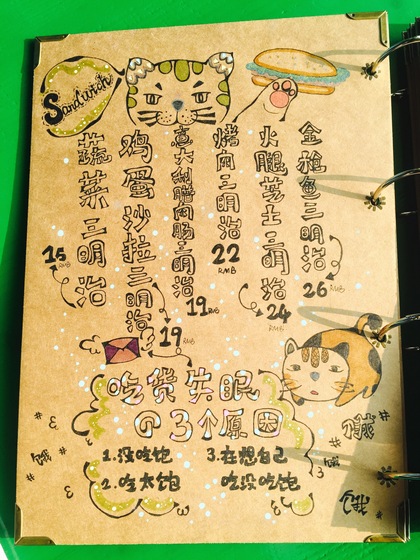 Sandwich
蔬菜三明治
15 RMB
鸡蛋沙拉三明治
19 RMB
意大利腊肉肠三明治
19 RMB
烤肉三明治
22 RMB
火腿芝士三明治
24 RMB
金枪鱼三明治
26 RMB
吃货失眠
的3个原因
1.没吃饱
2.吃太饱
3.在想自己
吃没吃饱
饿
饿
饿
饿